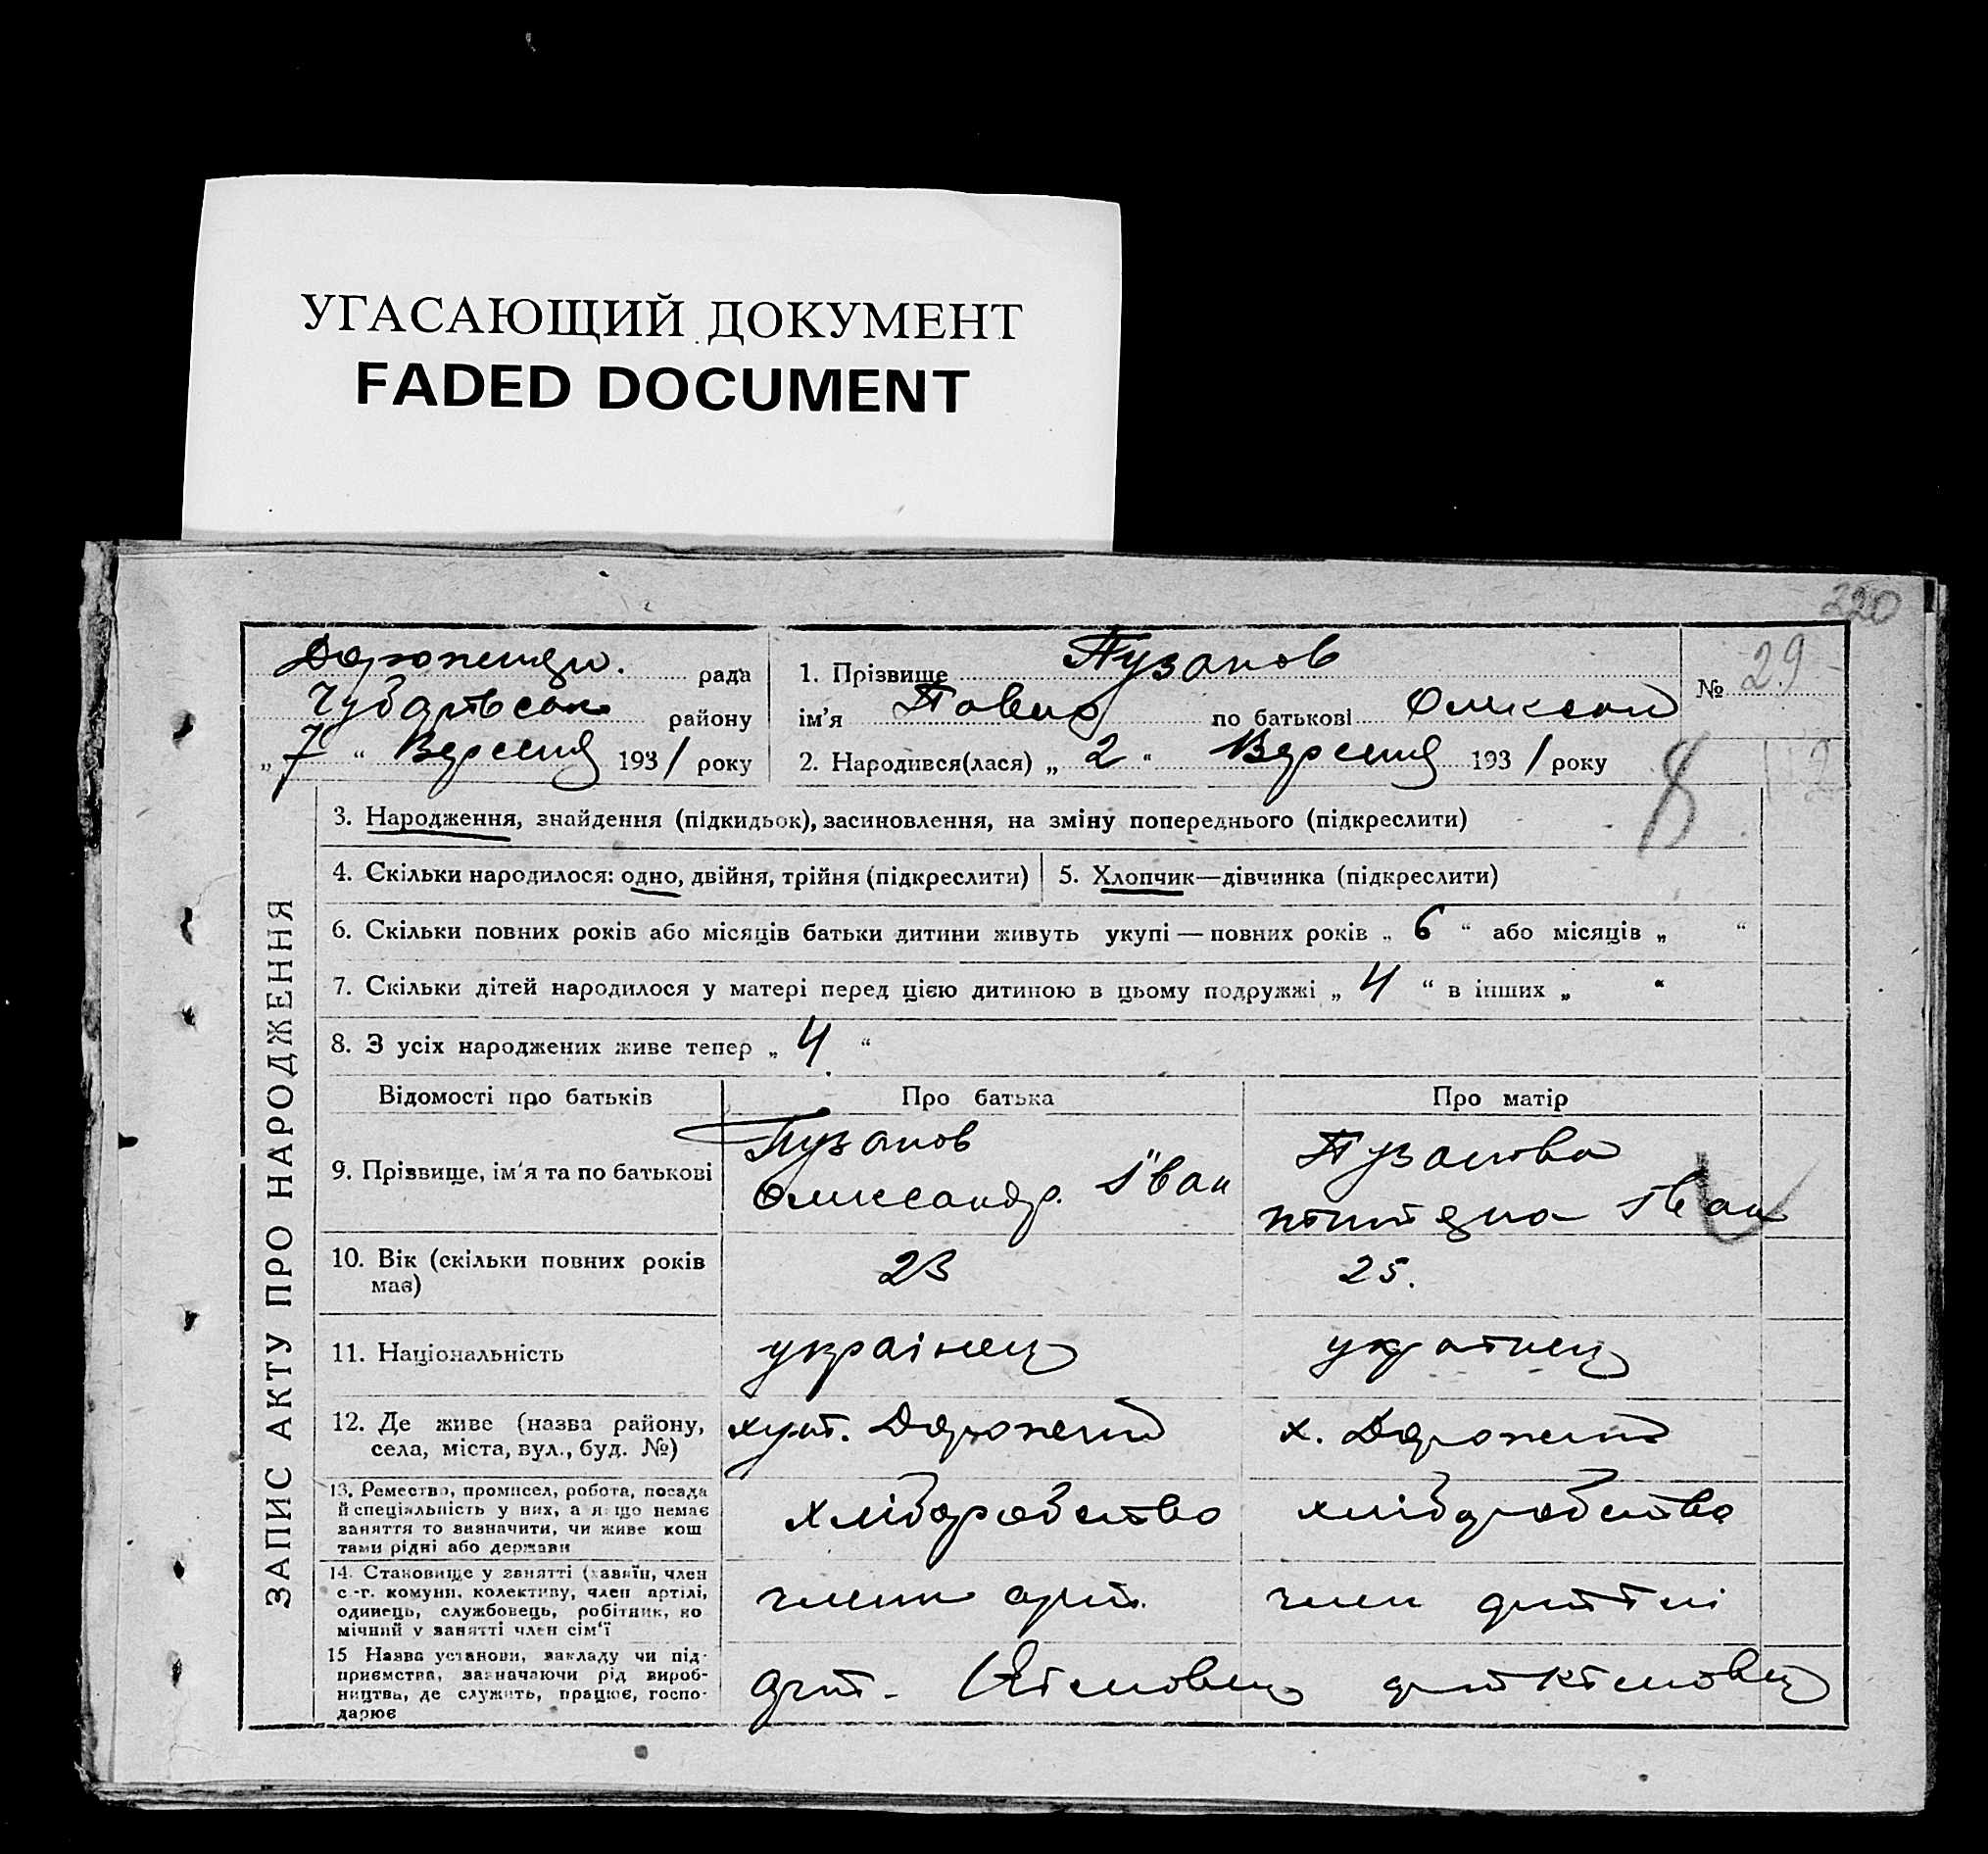 УГАСАЮЩИЙ ДОКУМЕНТ
FADED DOCUMENT
220
рада
району
„ 7 “ Вересня 1931 року
1. Прізвище Пузанов
ім’я Павло по батькові Олександ
2. Народився(лася) „ 2 “ Вересня 1931 року
№ 29
8
ЗАПИС АКТУ ПРО НАРОДЖЕННЯ
3. Народження, знайдення (підкидьок), засиновлення, на зміну попереднього (підкреслити)
4. Скільки народилося: одно, двійня, трійня (підкреслити)
5. Хлопчик—дівчинка (підкреслити)
6. Скільки повних років або місяців батьки дитини живуть укупі — повних років „ 6 “ або місяців „ “
7. Скільки дітей народилося у матері перед цією дитиною в цьому подружжі „ 4 “ в інших „ “
8. З усіх народжених живе тепер „ 4 “
Відомості про батьків
Про батька
Про матір
9. Прізвище, ім’я та по батькові
Пузанов
Олександр. Іван
Пузанова
Іван
10. Вік (скільки повних років
має)
23
25.
11. Національність
українец
українец
12. Де живе (назва району,
села, міста, вул., буд. №)
хут.
х.
13. Ремество, промисел, робота, посада
й спеціяльність у них, а якщо немає
заняття то визначити, чи живе кош
тами рідні або держави
хліборобство
хліборобство
14. Становище у занятті (хазяїн, член
с.-г. комуни, колективу, член артілі,
одинець, службовець, робітник, по
мічний у занятті член сім’ї
член арт.
член артілі
15 Назва установи, закладу чи під-
приємства, зазначаючи рід вироб-
ництва, де служить, працює, госпо-
дарює
арт.
арт